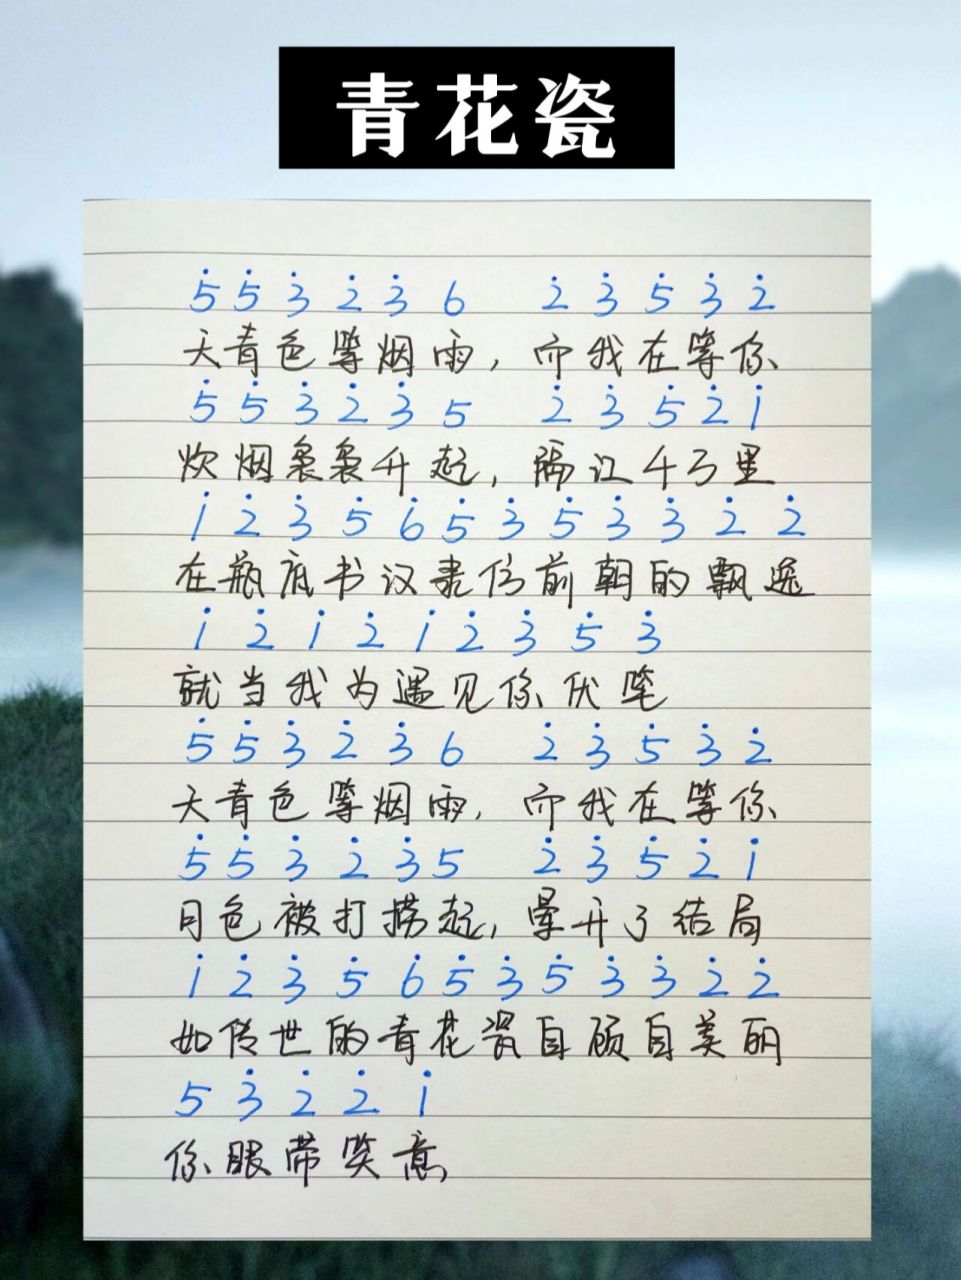 青花瓷
5̇ 5̇ 3̇ 2̇ 3̇ 6 2̇ 3̇ 5̇ 3̇ 2̇
天青色等烟雨，而我在等你
5̇ 5̇ 3̇ 2̇ 3̇ 5 2̇ 3̇ 5̇ 2̇ 1̇
炊烟袅袅升起，隔江千万里
1̇ 2̇ 3̇ 5̇ 6̇ 5̇ 3̇ 5̇ 3̇ 3̇ 2̇ 2̇
在瓶底书汉隶仿前朝的飘逸
1̇ 2̇ 1̇ 2̇ 1̇ 2̇ 3̇ 5̇ 3̇
就当我为遇见你伏笔
5̇ 5̇ 3̇ 2̇ 3̇ 6 2̇ 3̇ 5̇ 3̇ 2̇
天青色等烟雨，而我在等你
5̇ 5̇ 3̇ 2̇ 3̇ 5 2̇ 3̇ 5̇ 2̇ 1̇
月色被打捞起，晕开了结局
1̇ 2̇ 3̇ 5̇ 6̇ 5̇ 3̇ 5̇ 3̇ 3̇ 2̇ 2̇
如传世的青花瓷自顾自美丽
5 3̇ 2̇ 2̇ 1̇
你眼带笑意